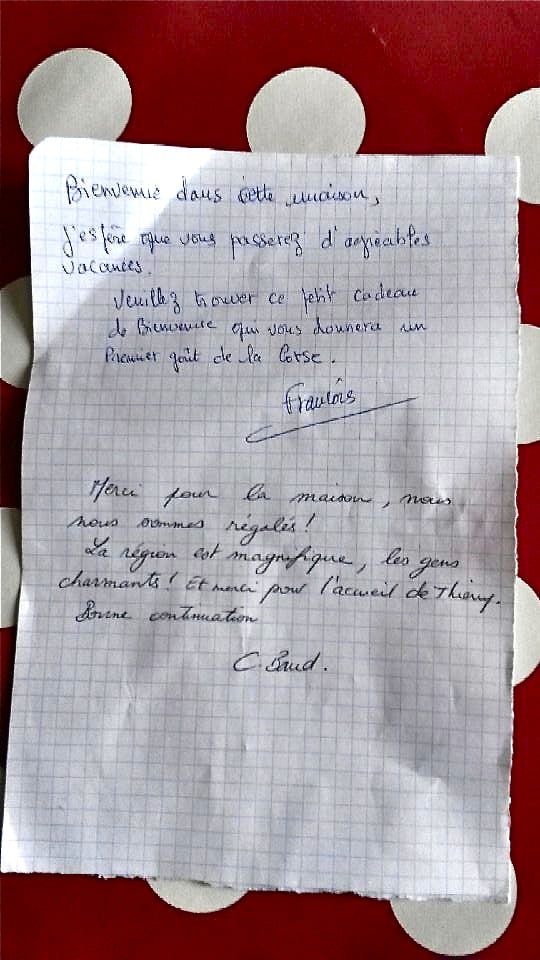 Bienvenue dans cette maison,
J'espère que vous passerez d'agréables
vacances.
Veuillez trouver ce petit cadeau
de Bienvenue qui vous donnera un
Premier goût de la Corse.
François
Merci pour la maison, nous
nous sommes régalés!
La région est magnifique, les gens
charmants! Et merci pour l'accueil de Thierry.
Bonne continuation
C. Baud.